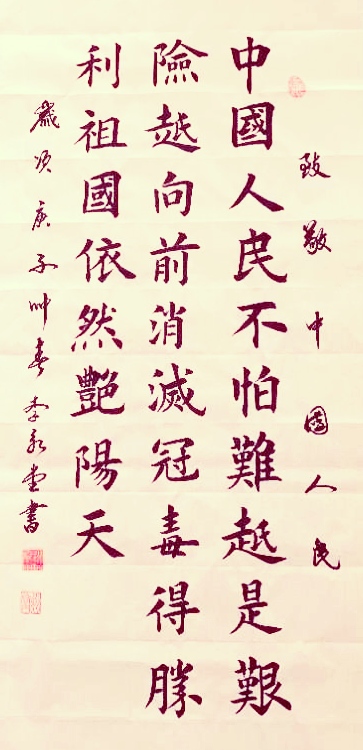 致敬中國人民
中國人民不怕難越是艱
險越向前消滅冠毒得勝
利祖國依然豔陽天
歲次庚子仲春李永堂書